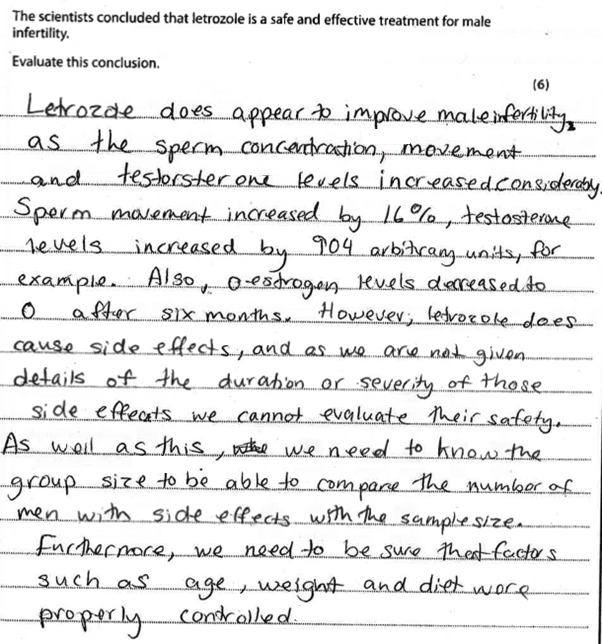 The scientists concluded that letrozole is a safe and effective treatment for male
infertility.
Evaluate this conclusion.
(6)
Letrozole does appear to improve male infertility,
as the sperm concentration, movement
and testorsterone levels increased considerably.
Sperm movement increased by 16%, testosterone
levels increased by 904 arbitrary units, for
example. Also, oestrogen levels decreased to
0 after six months. However, letrozole does
cause side effects, and as we are not given
details of the duration or severity of those
side effects we cannot evaluate their safety.
As well as this, we need to know the
group size to be able to compare the number of
men with side effects with the sample size.
Furthermore, we need to be sure that factors
such as age, weight and diet were
properly controlled.